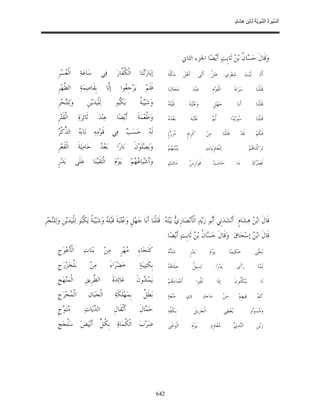 السِّيرَةُ النَّبَوِيَّةُ لِابْنِ هِشَامٍ
وَقَالَ حَسَّانُ بْنُ ثَابِتٍ أَيْضًا الجزء الثاني :
أَلَا لَيْتَ شِعْرِي هَلْ أَتَى أَهْلَ مَكَّةَ إبَارَتُنَا الْكُفَّارَ فِي سَاعَةِ الْعُسْرِ
قَتَلْنَا سَرَاةَ الْقَوْمِ عِنْدَ مَجَالِنَا فَلَمْ يَرْجِعُوا إلَّا بِقَاصِمَةِ الظَّهْرِ
قَتَلْنَا أَبَا جَهْلٍ وَعُتْبَةَ قَبْلَهُ وَشَيْبَةُ يَكْبُو لِلْيَدَيْنِ وَلِلنَّحْرِ
قَتَلْنَا سُوَيْدًا ثُمَّ عُتْبَةَ بَعْدَهُ وَطُعْمَةَ أَيْضًا عِنْدَ ثَائِرَةِ الْقَتْرِ
فَكَمْ قَدْ قَتَلْنَا مِنْ كَرِيمٍ مُرَزَّإٍ لَهُ حَسَبٌ فِي قَوْمِهِ نَابِهُ الذِّكْرِ
تَرَكْنَاهُمْ لِلْعَاوِيَاتِ يَنُبْنَهُمْ وَيَصْلَوْنَ نَارًا بَعْدُ حَامِيَةَ الْقَعْرِ
لَعَمْرُكَ مَا حَامَتْ فَوَارِسُ مَالِكٍ وَأَشْيَاعُهُمْ يَوْمَ الْتَقَيْنَا عَلَى بَدْرِ
قَالَ ابْنُ هِشَامٍ: أَنْشَدَنِي أَبُو زَيْدٍ الْأَنْصَارِيُّ بَيْتَهُ: قَتَلْنَا أَبَا جَهْلٍ وَعُتْبَةَ قَبْلَهُ وَشَيْبَةُ يَكْبُو لِلْيَدَيْنِ وَلِلنَّحْرِ
قَالَ ابْنُ إسْحَاقَ: وَقَالَ حَسَّانُ بْنُ ثَابِتٍ أَيْضًا:
نَجَّى حَكِيمًا يَوْمَ بَدْرٍ شَدُّهُ كَنَجَاءِ مُهْرٍ مِنْ بَنَاتِ الْأَعْوَجِ
لَمَّا رَأَى بَدْرًا تَسِيلُ جِلَاهُهُ بِكَتِيبَةٍ خَضْرَاءَ مِنْ بَلْخَزْرَجِ
لَا يَنْكُلُونَ إذَا لَقُوا أَعْدَاءَهُمْ يَمْشُونَ عَائِدَةَ الطَّرِيقِ الْمَنْهَجِ
كَمْ فِيهِمْ مِنْ مَاجِدٍ ذِي مَنْعَةٍ بَطَلٍ بِمَهْلَكَةِ الْجَبَانِ الْمُحْرَجِ
وَمُسَوَّدٍ يُعْطِي الْجَزِيلَ بِكَفِّهِ حَمَّالِ أَثْقَالِ الدِّيَاتِ مُتَوَّجِ
زَيْنِ النَّدِيِّ مُعَاوِدٍ يَوْمَ الْوَغَى ضَرْبَ الْكُمَاةِ بِكُلِّ أَبْيَضَ سَلْجَجِ
642